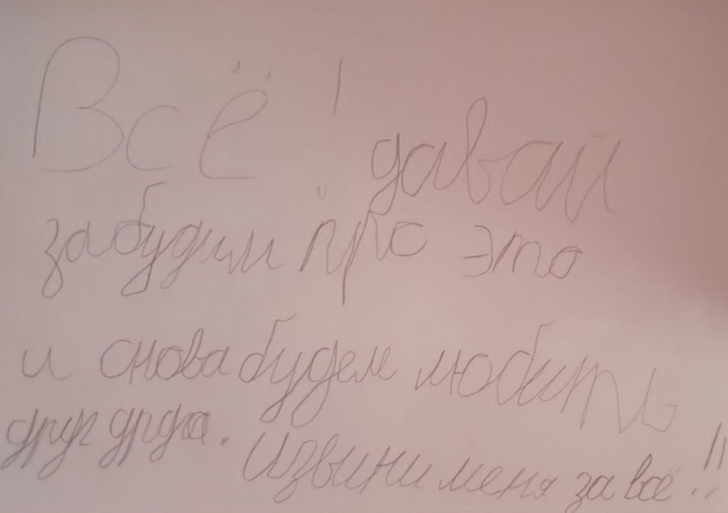 Всё! давай
забудим про это
и снова будем любить
друг друга. Извини меня за всё!!